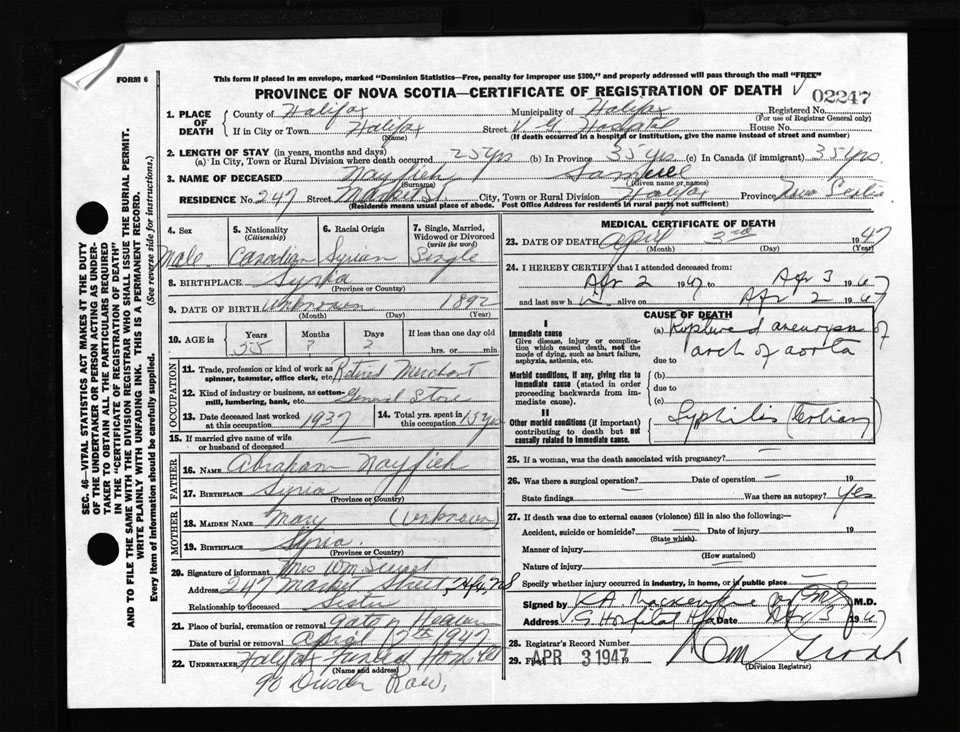 FORM 6
This form if placed in an envelope, marked "Dominion Statistics—Free, penalty for improper use $300," and properly addressed will pass through the mail "FREE"
PROVINCE OF NOVA SCOTIA—CERTIFICATE OF REGISTRATION OF DEATH
02247
1. PLACE OF DEATH
County of Halifax Municipality of Halifax Registered No.
(For use of Registrar General only)
If in City or Town Halifax Street V. G. Hospital House No.
(Name) (If death occurred in a hospital or institution, give the name instead of street and number)
2. LENGTH OF STAY (in years, months and days)
(a) In City, Town or Rural Division where death occurred 25 yrs (b) In Province 35 yrs. (c) In Canada (if immigrant) 35 yrs.
3. NAME OF DECEASED Nayfieh Samuel
(Surname) (Given name or names)
RESIDENCE No. 247 Street Market St City, Town or Rural Division Halifax Province Nova Scotia
(Residence means usual place of abode. Post Office Address for residents in rural parts not sufficient)
4. Sex Male
5. Nationality (Citizenship) Canadian
6. Racial Origin Syrian
7. Single, Married, Widowed or Divorced (write the word) Single
8. BIRTHPLACE Syria
(Province or Country)
9. DATE OF BIRTH unknown 1892
(Month) (Day) (Year)
10. AGE in Years Months Days If less than one day old
55 ? ? hrs. or min.
OCCUPATION
11. Trade, profession or kind of work as spinner, teamster, office clerk, etc. Retired Merchant
12. Kind of industry or business, as cotton-mill, lumbering, bank, etc. General Store
13. Date deceased last worked at this occupation 1937
14. Total yrs. spent in this occupation 15 yrs
15. If married give name of wife or husband of deceased —
FATHER
16. NAME Abraham Nayfieh
17. BIRTHPLACE Syria
(Province or Country)
MOTHER
18. MAIDEN NAME Mary (unknown)
19. BIRTHPLACE Syria.
(Province or Country)
20. Signature of informant Mrs Wm
Address 247 Market Street, Hfx, NS
Relationship to deceased Sister
21. Place of burial, cremation or removal Gate of Heaven
Date of burial or removal April 1947
22. UNDERTAKER Halifax Funeral Home Ltd
(Name and address)
90 Row,
MEDICAL CERTIFICATE OF DEATH
23. DATE OF DEATH April 3rd 1947
(Month) (Day) (Year)
24. I HEREBY CERTIFY that I attended deceased from:
Apr 2 1947 to Apr 3 1947
and last saw h im alive on Apr 2 1947
CAUSE OF DEATH
I
Immediate cause
Give disease, injury or complication which caused death, not the mode of dying, such as heart failure, asphyxia, asthenia, etc.
(a) Ruptured aneurysm of arch of aorta
due to
Morbid conditions, if any, giving rise to immediate cause (stated in order proceeding backwards from immediate cause).
(b)
due to
(c)
II
Other morbid conditions (if important) contributing to death but not causally related to immediate cause.
Syphilis (Tertiary)
25. If a woman, was the death associated with pregnancy? —
26. Was there a surgical operation? — Date of operation — 19
State findings Was there an autopsy? Yes
27. If death was due to external causes (violence) fill in also the following:—
Accident, suicide or homicide? — Date of injury — 19
(State which)
Manner of injury
(How sustained)
Nature of injury
Specify whether injury occurred in industry, in home, or in public place
Signed by K A Mackenzie M.D.
Address V G Hospital Hfx Date Apr 3 1947
28. Registrar's Record Number
29. Filed APR 3 1947
(Division Registrar)
SEC. 46—VITAL STATISTICS ACT MAKES IT THE DUTY OF THE UNDERTAKER OR PERSON ACTING AS UNDERTAKER TO OBTAIN ALL THE PARTICULARS REQUIRED IN THE "CERTIFICATE OF REGISTRATION OF DEATH"
AND TO FILE THE SAME WITH THE DIVISION REGISTRAR WHO SHALL ISSUE THE BURIAL PERMIT.
WRITE PLAINLY WITH UNFADING INK. THIS IS A PERMANENT RECORD.
Every item of information should be carefully supplied. (See reverse side for instructions.)